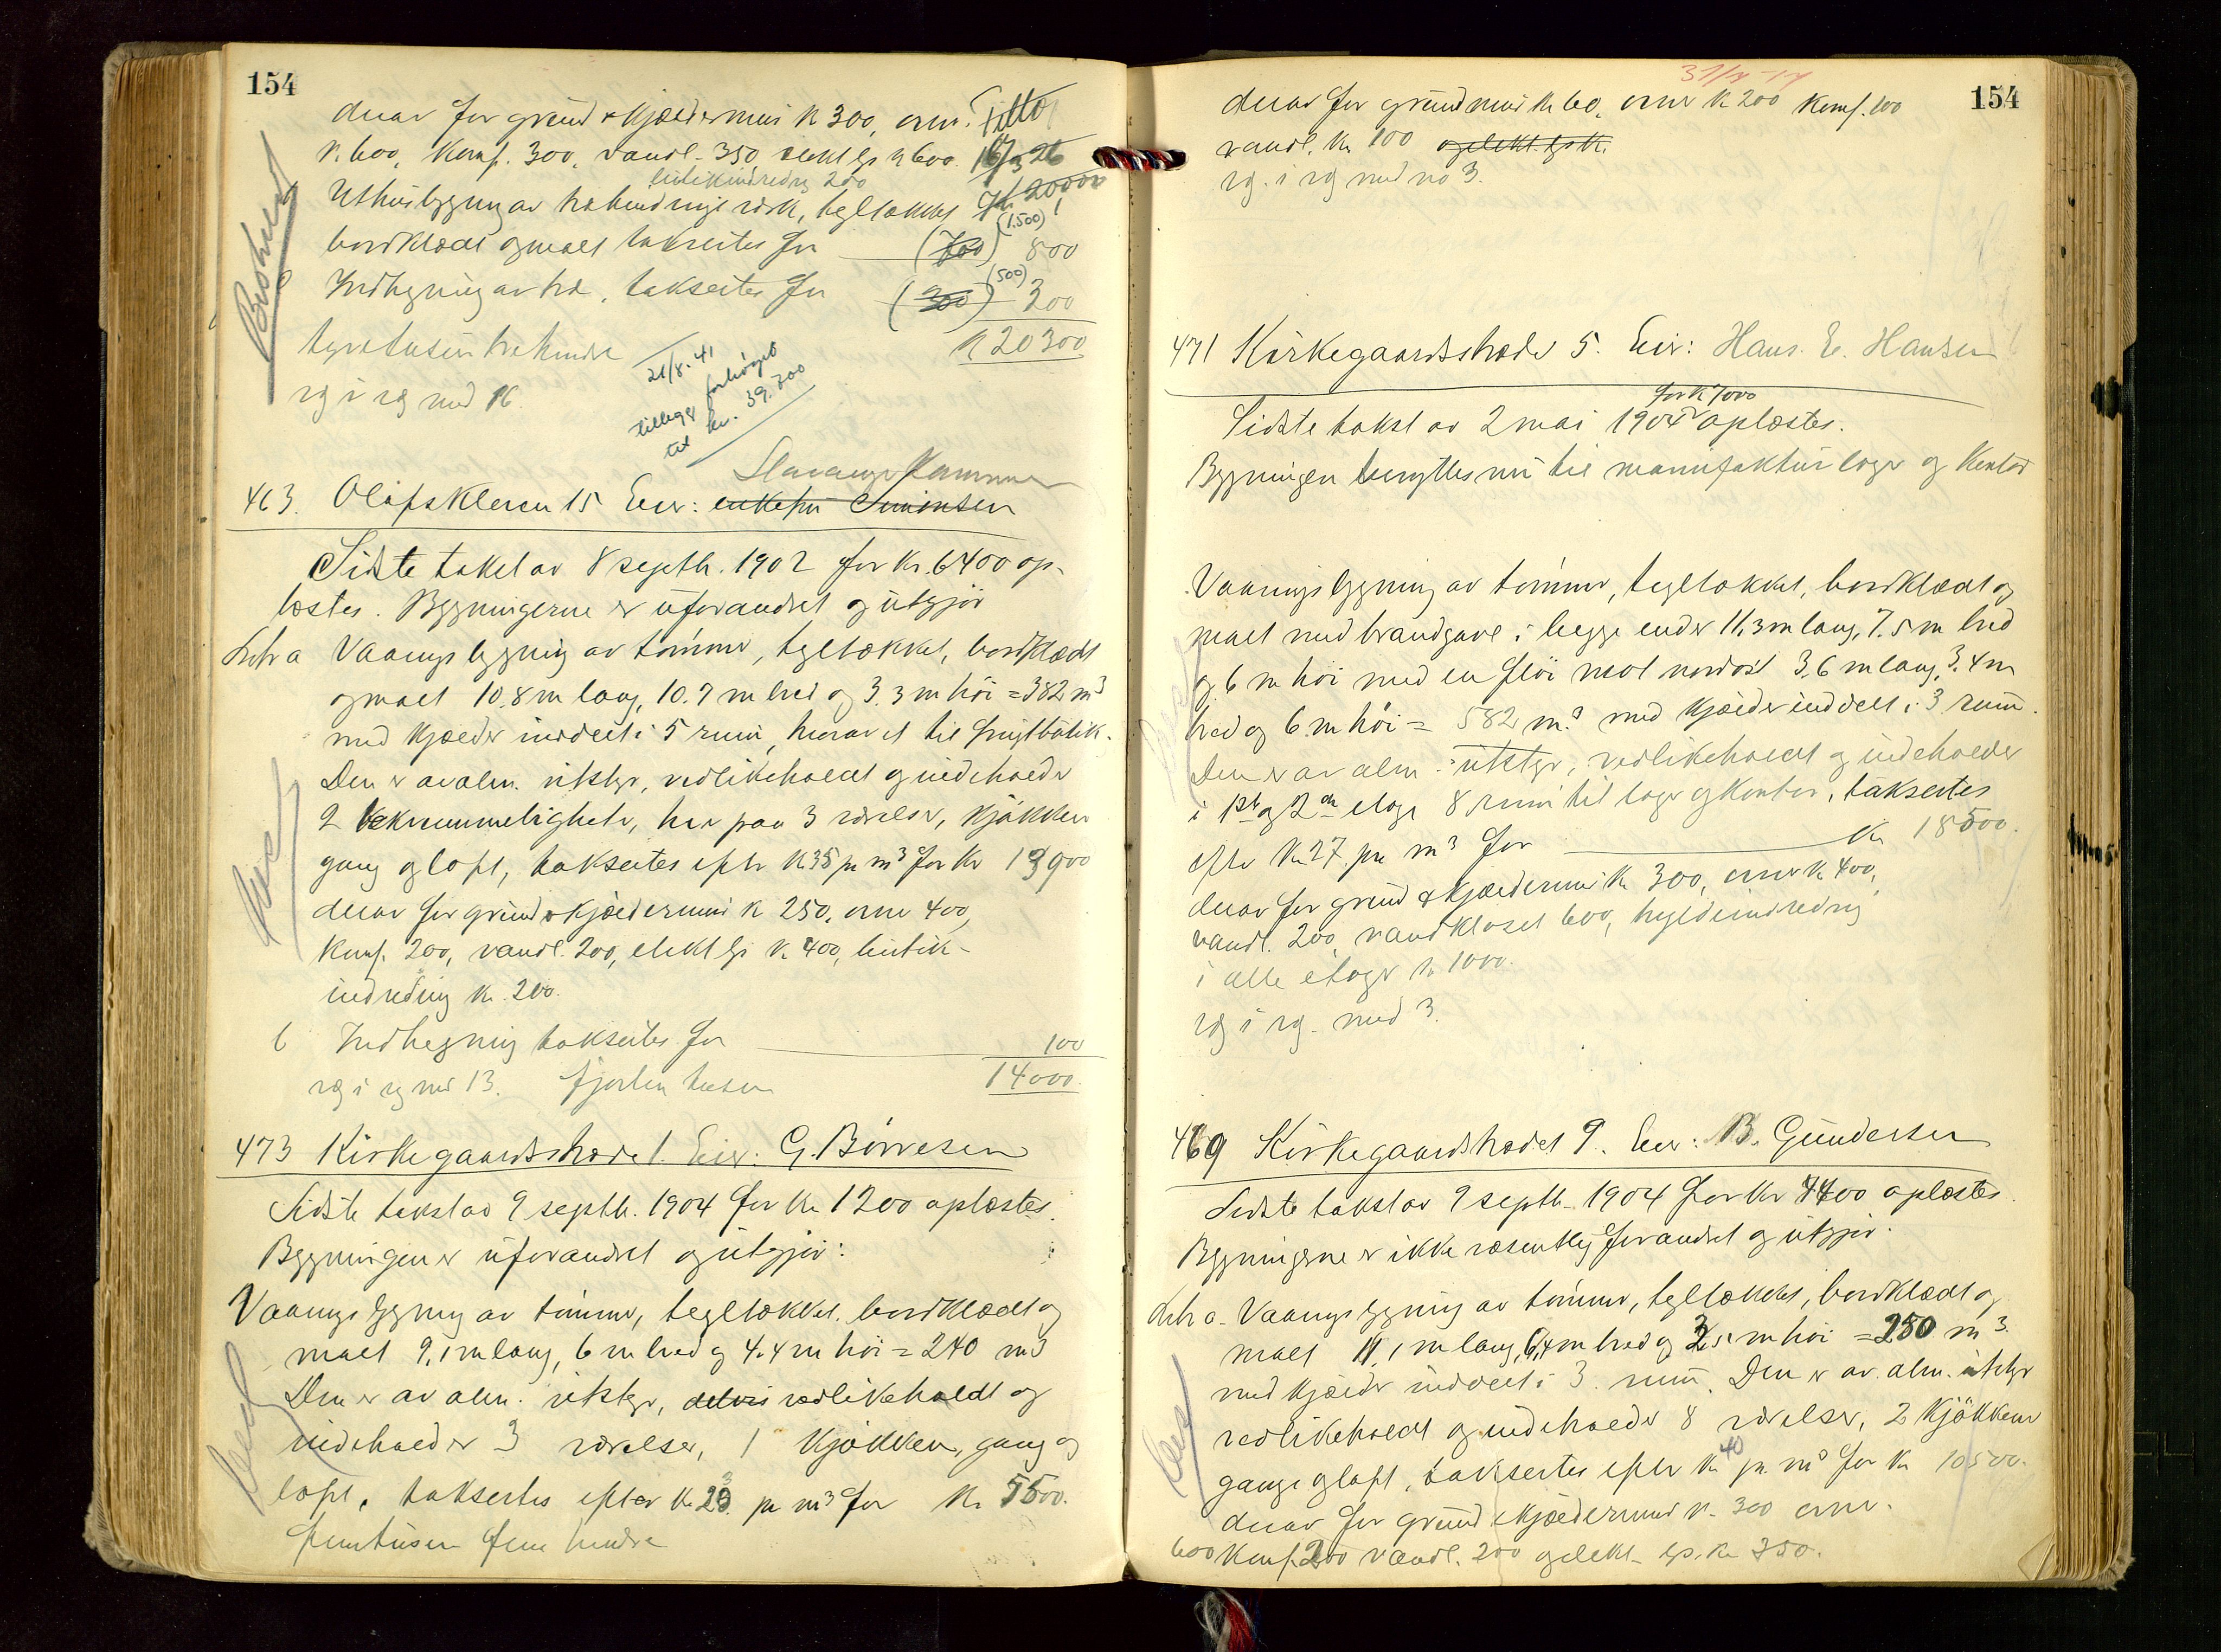 154
derav for grund & kjældermur k 300, ovner
k. 600, Komf. 300, vandl. 350 elekt lys k 600. 16/3 26
butikindredng 200
Uthusbygning av træbindingsverk, tegltækket 20000
(1.500)
bordklædt og malt takseres for (700) 800
(500)
Indhegning av træ, takseres for (200) 300
tyvetusen trehundre k 20300
21/8. 41
tillegg forhöyet
til kr. 39.300
og i rg med 16.
Stavanger Kommune
463. Olafskleven 15 Eier: enkefru Simonsen
Sidste takst av 8 septbr. 1902 for kr. 6400 op-
læstes. Bygningerne er uforandret og utgjör
Litr a Vaaningsbygning av tömmer, tegltækket, bordklædt
og malt 10.8 m lang, 10.7 m bred og 3.3 m höi = 382 m3
med kjælder inddelt i 5 rum, herav et til frugtbutik.
Den er av alm. utstyr, vedlikeholdt og indeholder
2 bekvemmeligheter, hver paa 3 værelser, kjökken
gang og loft, takseres efter k 35 pr m3 for kr 13900
derav for grund & kjældermur k 250, ovne 400,
Komf. 200, vandl. 200, elekt lys k 400, butik-
indredning kr. 200.
b Indhegning takseres for 100
og i rg med 13. fjorten tusen 14000.
473 Kirkegaardstrædet 1. Eier: G. Börresen
Sidste takst av 9 septbr. 1904 for kr 1200 oplæstes.
Bygningen er uforandret og utgjör:
Vaaningsbygning av tömmer, tegltækket, bordklædt og
malt 9,1 m lang, 6 m bred og 4.4 m höi = 240 m3
Den er av alm. utstyr, delvis vedlikeholdt og
indeholder 3 værelser, 1 kjökken, gang og
loft, takseres efter kr 23 pr m3 for kr. 5500.
femtusen fem hundre
154
derav for grundmur kr 60, ovner k 200 komf. 100
vandl. kr 100 og elekt. lys k.
og i rg med no 3.
471 Kirkegaardstrædet 5. Eier: Hans. E. Hansen
for k 7000
Sidste takst av 2 mai 1904 oplæstes.
Bygningen benyttes nu til manufaktur lager og kontor
Vaaningsbygning av tömmer, tegltækket, bordklædt og
malt med brandgavl i begge ender 11,3 m lang, 7.5 m bred
og 6 m höi med en flöi mot nordost 3,6 m lang, 3.4 m
bred og 6 m höi = 582 m3 med kjælder inddelt i 3 rum.
Den er av alm. utstyr, vedlikeholdt og indeholder
i 1ste og 2den etage 8 rum til lager og kontor, takseres
efter kr 27 pr m3 for kr 18500.
derav for grund & kjældermur k. 300, ovner k 400,
vandl. 200, vandkloset 600, hyldeindredng
i alle etager k 1000.
og i rg. med 3.
469 Kirkegaardstrædet 9. Eier: B. Gundersen
Sidste takst av 9 septb. 1904 for kr 4400 oplæstes.
Bygningerne er ikke væsentlig forandret og utgjör:
Litr a. Vaaningsbygning av tömmer, tegltækket, bordklædt og
malt 11,1 m lang, 6,4 m bred og 3,5 m höi = 250 m3.
med kjælder inddelt i 3 rum. Den er av alm. utstyr
vedlikeholdt og indeholder 8 værelser, 2 kjökkener
gange og loft, takseres efter kr 40 pr. m3 for kr 10500.
derav for grund & kjældermur k. 300 ovner
600 Komf. 200 vandl. 200 og elekt. lys. kr 350.